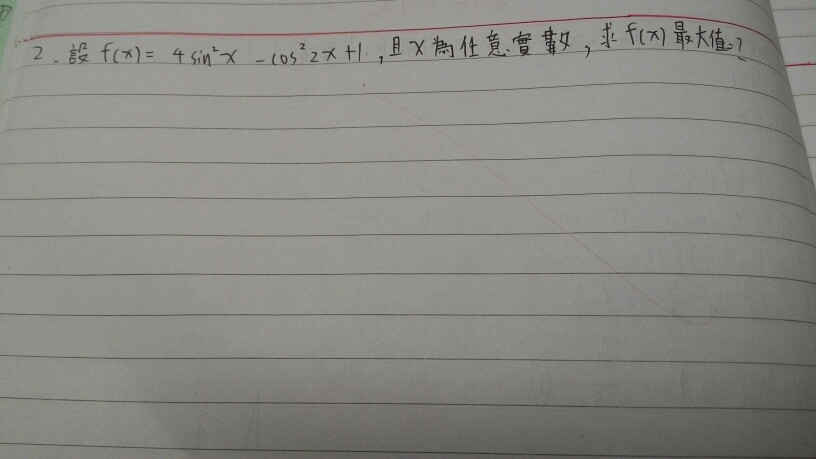 2. 設 f(x) = 4 sin²x - cos²2x + 1 , 且 x 為任意實數 , 求 f(x) 最大值?